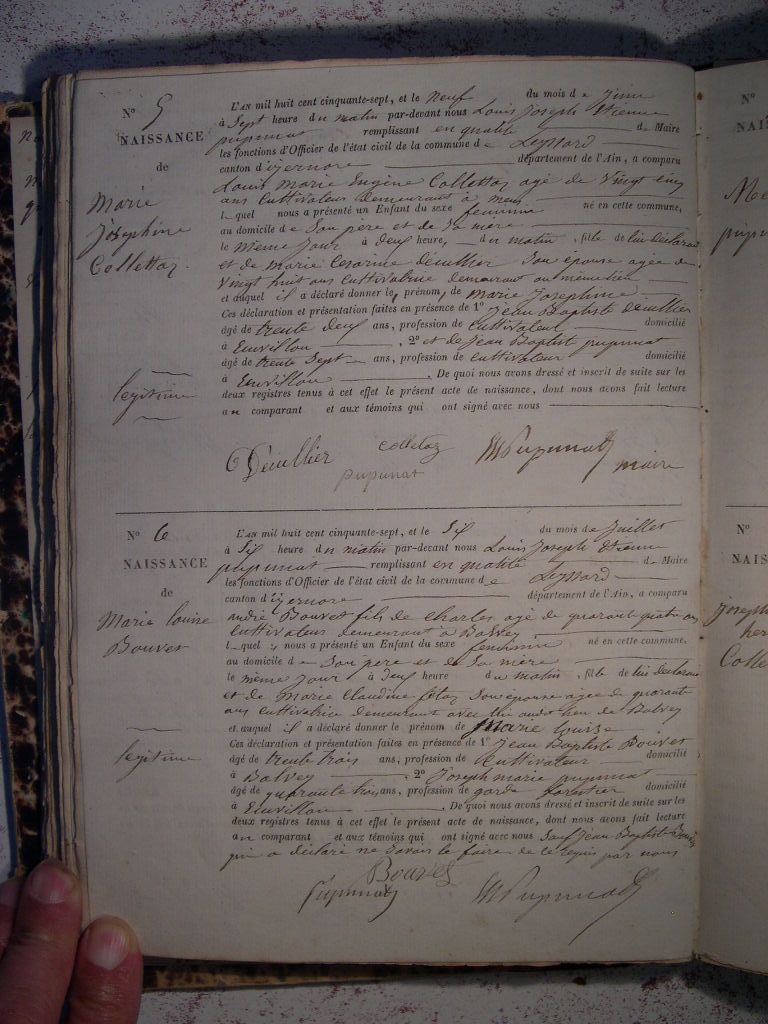 N° 5
NAISSANCE
de
Marie
Joséphine
Collettaz
legitime
L'AN mil huit cent cinquante-sept, et le neuf du mois de
à Sept heure du matin par-devant nous Louis Joseph Etienne
pupunat remplissant en qualité de Maire
les fonctions d'Officier de l'état civil de la commune de Leyssard
canton d'izernore département de l'Ain, a comparu
Louis Marie Eugène Collettaz agé de Vingt cinq
ans Cultivateur demeurant à
lequel nous a présenté un Enfant du sexe feminin né en cette commune,
au domicile de Son père et de sa mère
le même jour à deux heure, du matin, fille de lui déclarant
et de marie Cesarine decullier Son épouse agée de
Vingt huit ans Cultivatrice demeurant au même lieu
et auquel il a déclaré donner le, prénom, de Marie Josephine
Ces déclaration et présentation faites en présence de 1° Jean Baptiste decullier
âgé de trente deux ans, profession de Cultivateur domicilié
à Emvillon, 2° et de Jean Baptiste pupunat
âgé de trente Sept ans, profession de Cultivateur domicilié
à Emvillon. De quoi nous avons dressé et inscrit de suite sur les
deux registres tenus à cet effet le présent acte de naissance, dont nous avons fait lecture
au comparant et aux témoins qui ont signé avec nous
Décullier colletaz pupunat Pupunat maire
N° 6
NAISSANCE
de
Marie louise
Bouvet
legitime
L'AN mil huit cent cinquante-sept, et le Six du mois de Juillet
à Six heure du matin par-devant nous Louis Joseph Etienne
pupunat remplissant en qualité de Maire
les fonctions d'Officier de l'état civil de la commune de Leyssard
canton d'izernore département de l'Ain, a comparu
andré Bouvet fils de Charles agé de quarante quatre ans
Cultivateur demeurant à Balvey
lequel nous a présenté un Enfant du sexe feminin né en cette commune,
au domicile de Son père et de Sa mère
le même jour à deux heure du matin, fille de lui déclarant
et de Marie Claudine Son épouse agée de quarante
ans Cultivatrice demeurant avec lui audit lieu de Balvey
et auquel il a déclaré donner le prénom de Marie louise
Ces déclaration et présentation faites en présence de 1° Jean Baptiste Bouvet
âgé de trente trois ans, profession de Cultivateur domicilié
à Balvey, 2° Joseph marie pupunat
âgé de quarante trois ans, profession de garde forestier domicilié
à Emvillon. De quoi nous avons dressé et inscrit de suite sur les
deux registres tenus à cet effet le présent acte de naissance, dont nous avons fait lecture
au comparant et aux témoins qui ont signé avec nous Sauf Jean Baptiste Bouvet
qui a déclaré ne savoir le faire de ce requis par nous
Bouvet
Pupunat Pupunat